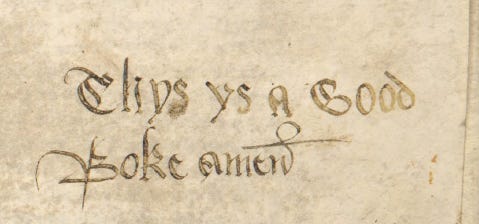 Thys ys a Good
Boke amen